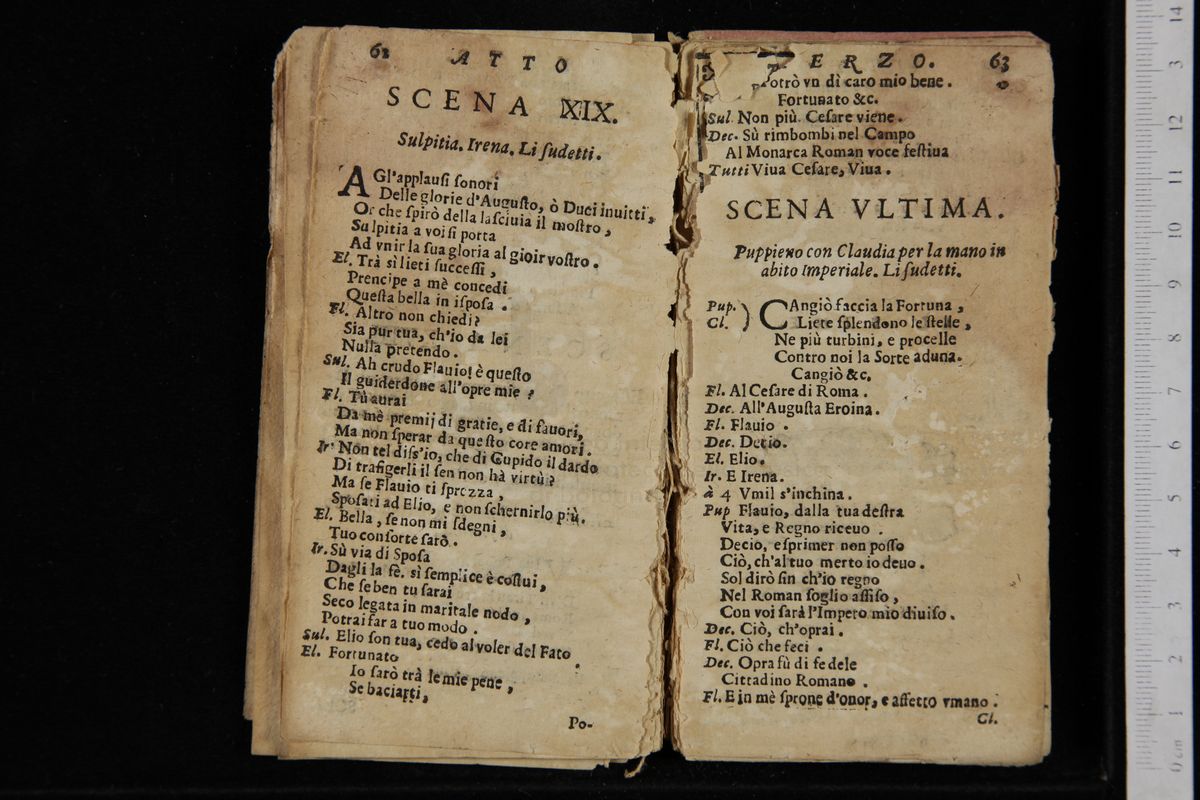 62 ATTO
SCENA XIX.
Sulpitia. Irena. Li ſudetti.
AGl'applauſi ſonori
Delle glorie d'Auguſto, ò Duci inuitti,
Or che ſpirò della laſciuia il moſtro,
Sulpitia a voi ſi porta
Ad vnir la ſua gloria al gioir voſtro.
El. Trà sì lieti ſucceſſi,
Prencipe a mè concedi
Queſta bella in iſpoſa.
Fl. Altro non chiedi?
Sia pur tua, ch'io da lei
Nulla pretendo.
Sul. Ah crudo Flauio! è queſto
Il guiderdone all'opre mie?
Fl. Tù aurai
Da mè premij di gratie, e di fauori,
Ma non ſperar da queſto core amori.
Ir. Non tel diſs'io, che di Cupido il dardo
Di trafigerli il ſen non hà virtù?
Ma ſe Flauio ti ſprezza,
Spoſati ad Elio, e non ſchernirlo più.
El. Bella, ſe non mi ſdegni,
Tuo conſorte ſarò.
Ir. Sù via di Spoſa
Dagli la fè. sì ſemplice è coſtui,
Che ſe ben tu ſarai
Seco legata in maritale nodo,
Potrai far a tuo modo.
Sul. Elio ſon tua, cedo al voler del Fato.
El. Fortunato
Io ſarò trà le mie pene,
Se baciarti,
Po-
TERZO. 63
Potrò vn dì caro mio bene.
Fortunato &c.
Sul. Non più. Ceſare viene.
Dec. Sù rimbombi nel Campo
Al Monarca Roman voce feſtiua
Tutti Viua Ceſare, Viua.
SCENA VLTIMA.
Puppieno con Claudia per la mano in
abito Imperiale. Li ſudetti.
Pup. ) CAngiò faccia la Fortuna,
Cl. Liete ſplendono le ſtelle,
Ne più turbini, e procelle
Contro noi la Sorte aduna.
Cangiò &c.
Fl. Al Ceſare di Roma.
Dec. All'Auguſta Eroina.
Fl. Flauio.
Dec. Decio.
El. Elio.
Ir. E Irena.
à 4 Vmil s'inchina.
Pup Flauio, dalla tua deſtra
Vita, e Regno riceuo.
Decio, eſprimer non poſſo
Ciò, ch'al tuo merto io deuo.
Sol dirò ſin ch'io regno
Nel Roman ſoglio aſſiſo,
Con voi ſarà l'Impero mio diuiſo.
Dec. Ciò, ch'oprai.
Fl. Ciò che feci.
Dec. Opra fù di fedele
Cittadino Romano.
Fl. E in mè ſprone d'onor, e affetto vmano.
Cl.